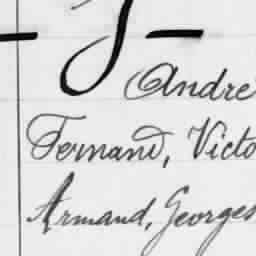 André
Fernand, Victo
Armand, Georges